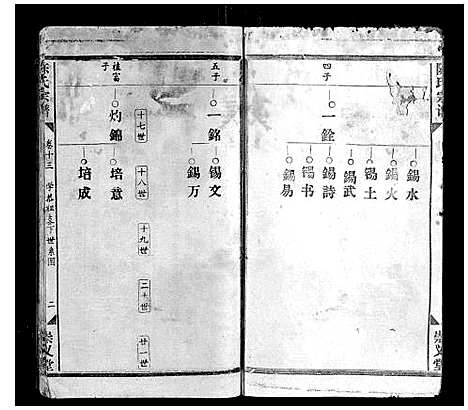 陳氏宗譜
崇义堂
四子
一銓
錫水
錫火
錫土
錫武
錫詩
錫书
錫易
五子
一銘
錫文
錫万
十七世
十八世
十九世
二十世
廿一世
桂富子
灼錦
培意
培成
陈氏宗谱
卷十三
下世系图
二
崇义堂